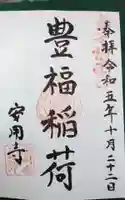 奉拝令和五年十月二十二日
豊福稲荷
安用寺